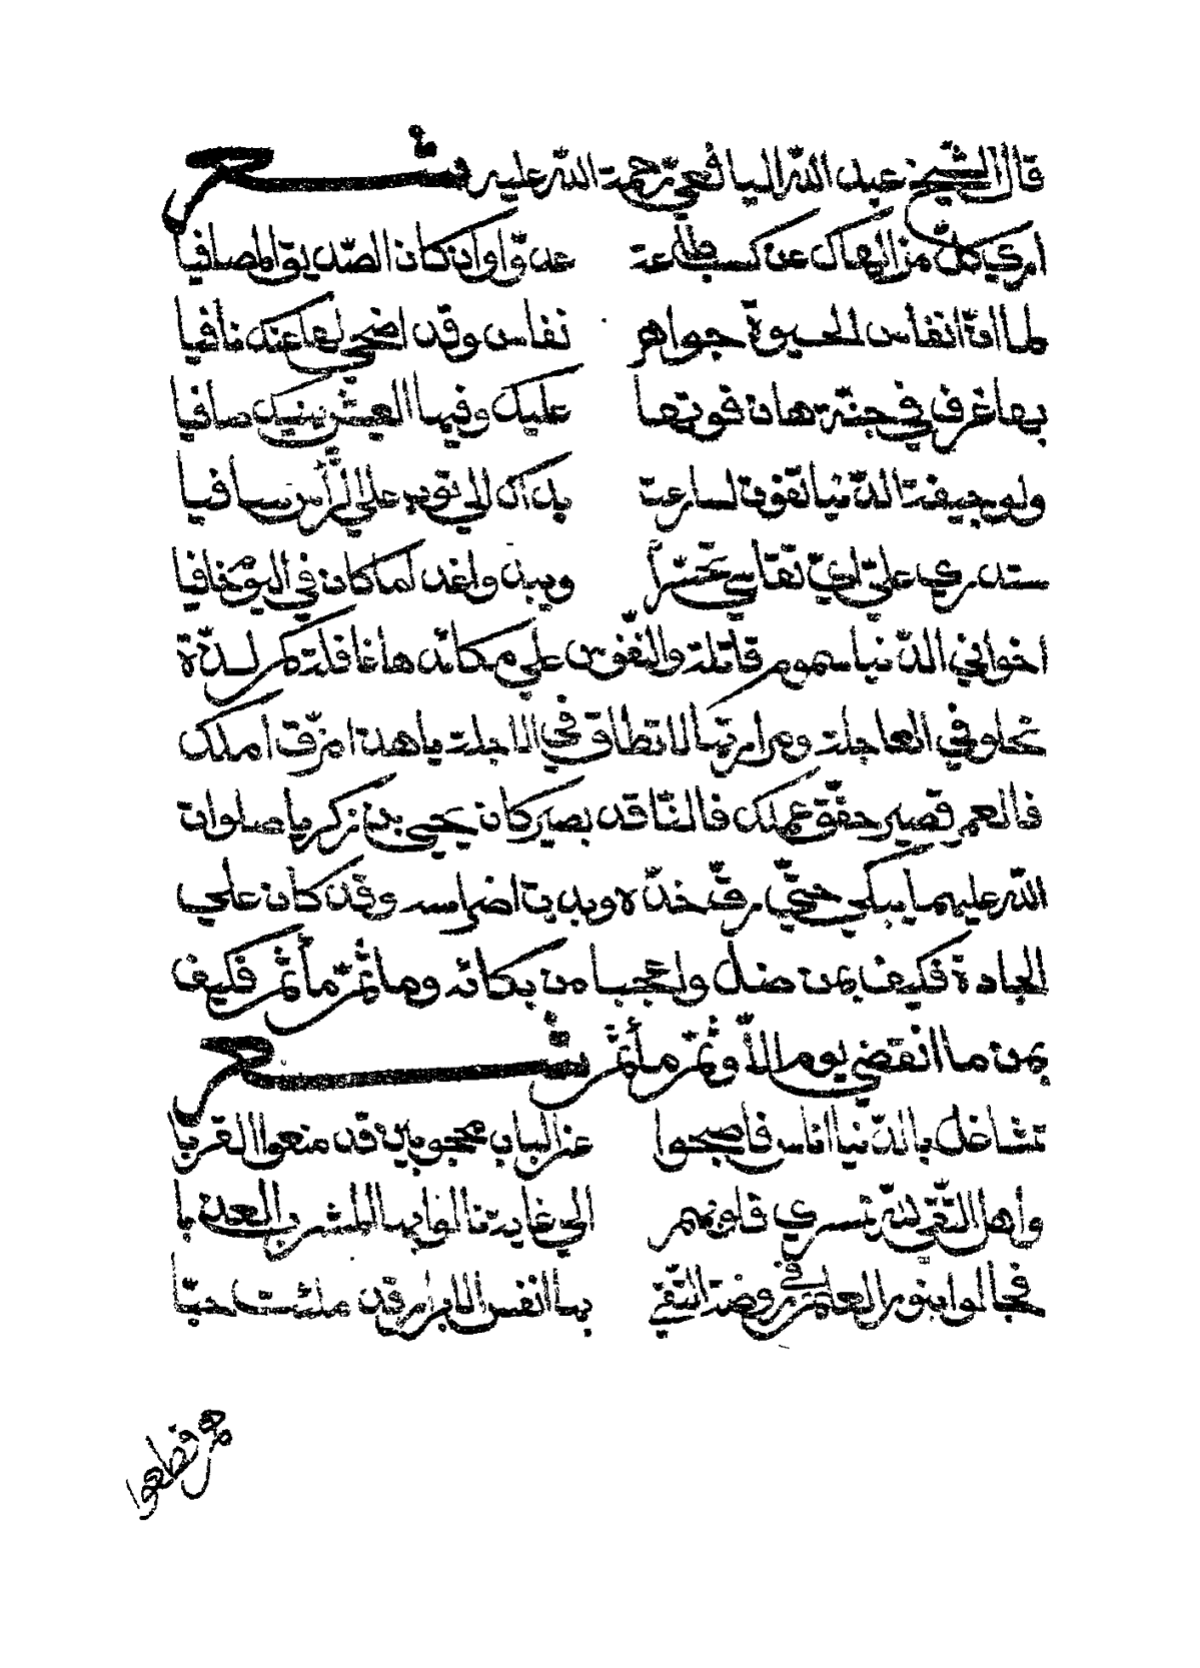 قال الشيخ عبد الله اليافعي رحمة الله عليه شعر
أري كل من ألهاك عن كسب طاعة عدوّا وان كان الصّديق المصافيا
لما افاتا نفاس الحيوة جواهر نفاس وقد اضحي لها عنك نافيا
بها غرف في جنّة هان فوتها عليك وفيها العيش يهنيك صافيا
ولو جيفة الدّنيا تفوق لساعة بدان الي توب علي الرّأس سافيا
ستدري علي ايّ تقاسي تحسّراً ويبد واغد لما كان في اليوم خافيا
اخواني الدّنيا سموم قاتلة والنّفوس علي مكائدها غافلة كم لذّة
تحلو في العاجلة ومرارتها لا تطاق في الاجلة يا هذا مزّق املك
فالعمر قصير حقّق عملك فالنّاقد بصير كان يحيي بن زكريا صلوات
الله عليهما يبكي حتّي رقّ خدّه وبدت اضراسه وقد كان علي
الجادة فكيف بمن ضل واعجبا من بكائه وما ثمّ مأثم فكيف
بمن ما انقضي يوم الاّ وثمّ مأثم شعر
تشاغل بالدّنيا اناس فاصبحوا عن الباب محجوبين قد منعوا القربا
وأهل التّقي لله تسري قلوبهم الي غاية نالوا بها المشرب العذبا
فجالوا بنور العلم في روضة التّقي بها انفس الابرار قد ملئت حبّا